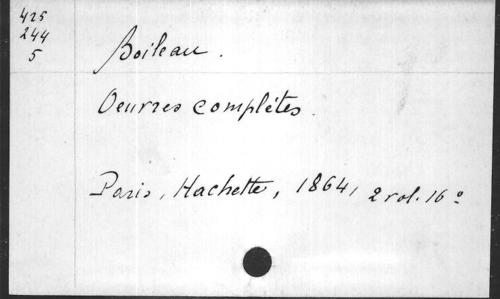 425
244
5
Boileau.
Oeuvres complètes.
Paris, Hachette, 1864, 2 vol. 16º